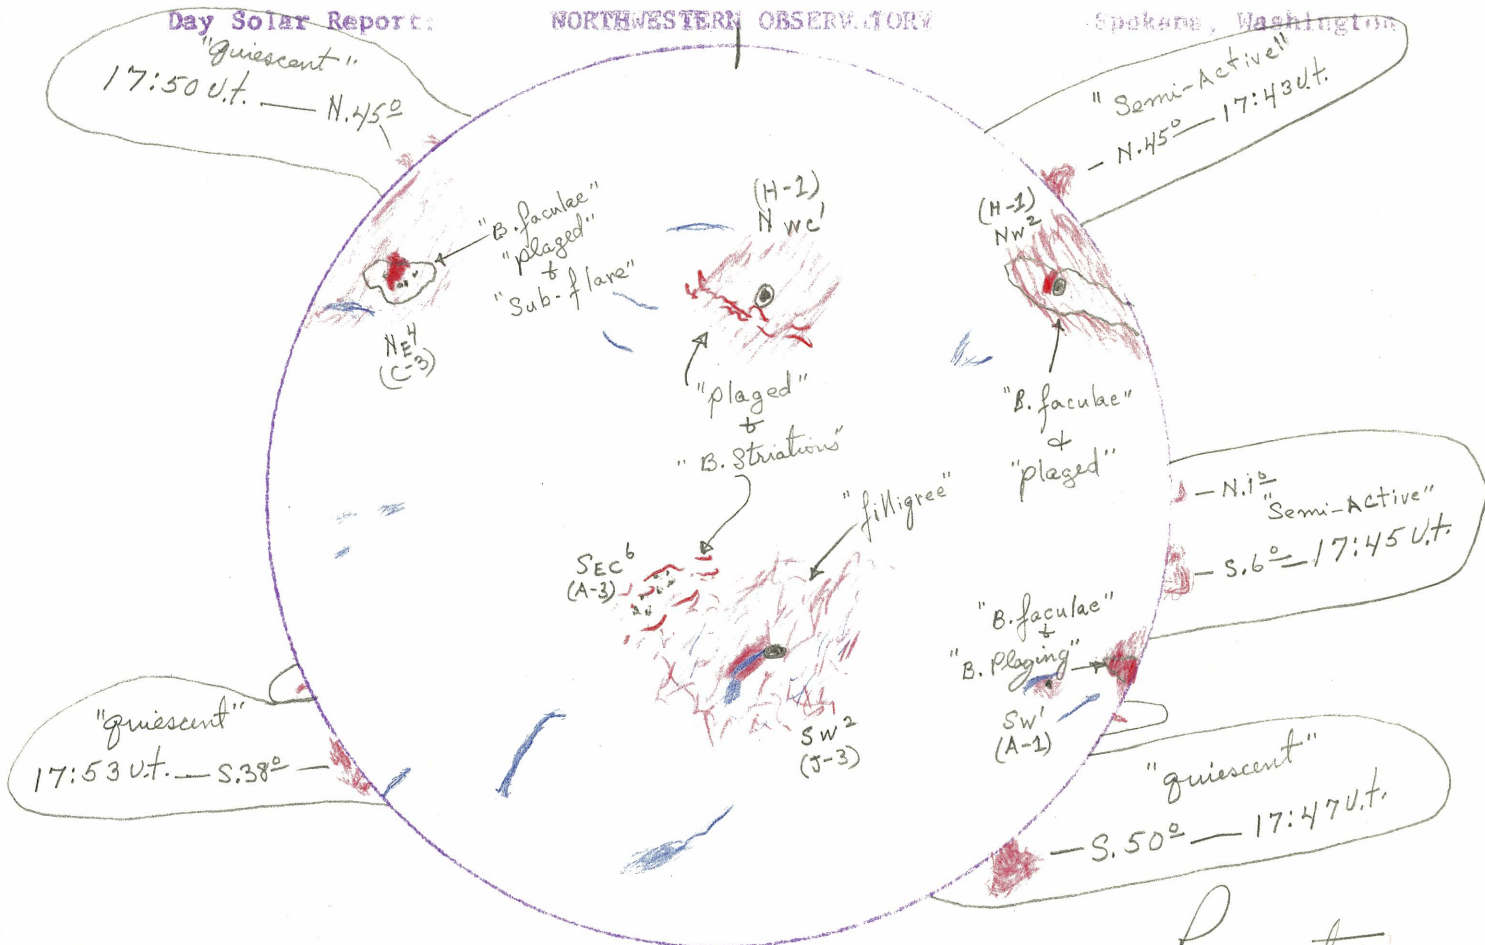 Day Solar Report: NORTHWESTERN OBSERVATORY Spokane, Washington
"quiescent"
17:50 U.t. — N.45º
"Semi-Active"
— N.45º — 17:43 U.t.
"B. faculae"
"plaged"
&
"Sub-flare"
NE4
(C-3)
(H-1)
NWC1
"plaged"
&
"B. Striations"
(H-1)
NW2
"B. faculae"
&
"plaged"
— N.1º
"Semi-Active"
— S.6º — 17:45 U.t.
"filligree"
SEC6
(A-3)
SW2
(J-3)
"B. faculae"
&
"B. Plaging"
SW1
(A-1)
"quiescent"
17:53 U.t. — S.38º —
"quiescent"
— S.50º — 17:47 U.t.